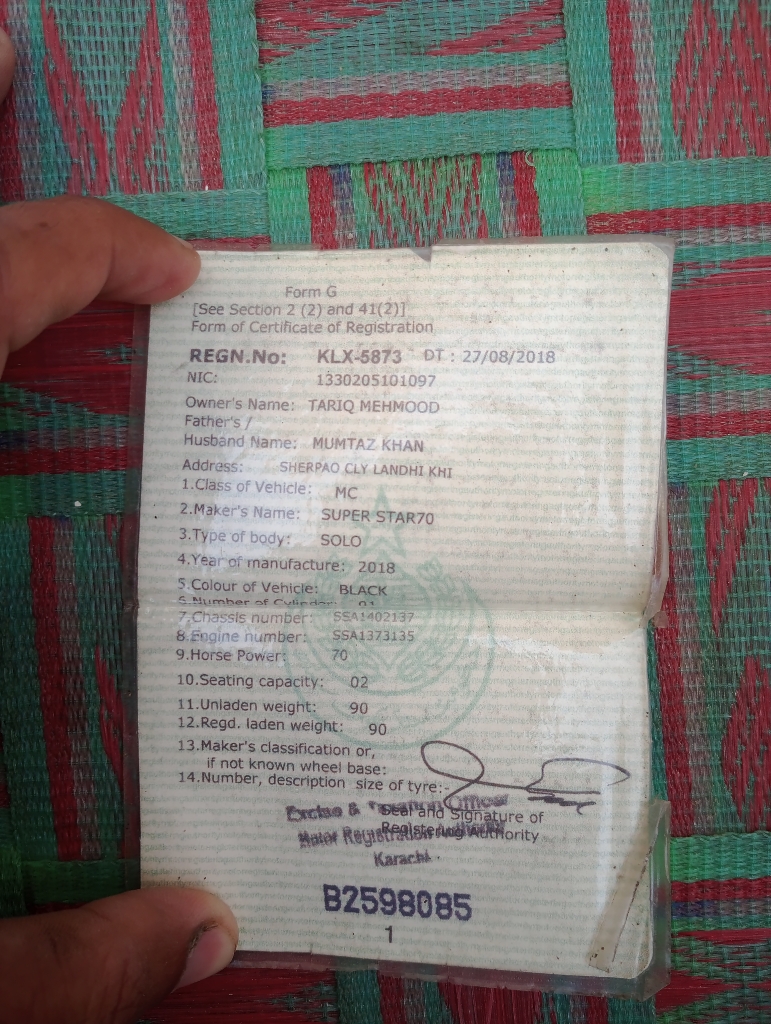 Form G
[See Section 2 (2) and 41(2)]
Form of Certificate of Registration
REGN.No: KLX-5873 DT : 27/08/2018
NIC: 1330205101097
Owner's Name: TARIQ MEHMOOD
Father's /
Husband Name: MUMTAZ KHAN
Address: SHERPAO CLY LANDHI KHI
1.Class of Vehicle: MC
2.Maker's Name: SUPER STAR70
3.Type of body: SOLO
4.Year of manufacture: 2018
5.Colour of Vehicle: BLACK
6.Number of Cylinder: 01
7.Chassis number: SSA1402137
8.Engine number: SSA1373135
9.Horse Power: 70
10.Seating capacity: 02
11.Unladen weight: 90
12.Regd. laden weight: 90
13.Maker's classification or,
if not known wheel base:
14.Number, description size of tyre:-
Excise & Taxation Officer
Seal and Signature of
Motor Registration
Registering Authority
Karachi.
B2598085
1